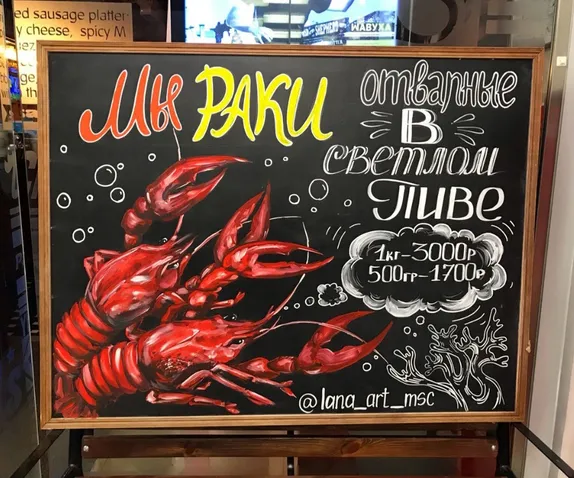 ed sausage platter
y cheese, spicy M
МЫ РАКИ
отварные
В
светлом
Пиве
1кг-3000р
500гр-1700р
@lana_art_msc